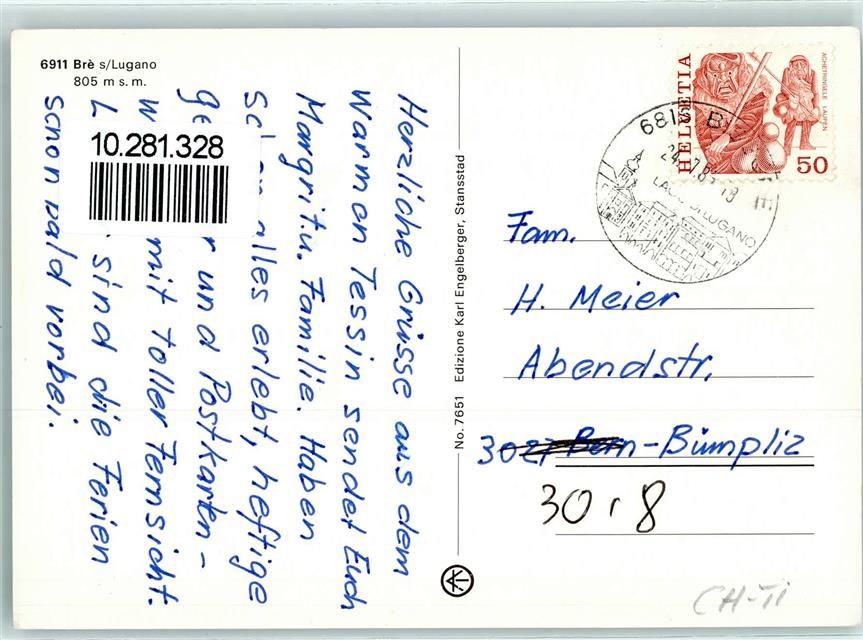 6911 Brè s/Lugano
805 m s. m.
10.281.328
Herzliche Grüsse aus dem
Warmen Tessin sendet Euch
Margrit u. Familie. Haben
alles erlebt, heftige
und Postkarten-
mit toller Fernsicht.
sind die Ferien
schon bald vorbei.
No. 7651 Edizione Karl Engelberger, Stansstad
HELVETIA
ACHETRINGELE LAUPEN
50
LAGO DI LUGANO
Fam.
H. Meier
Abendstr.
3027 Bern-Bümpliz
3018
CH-TI